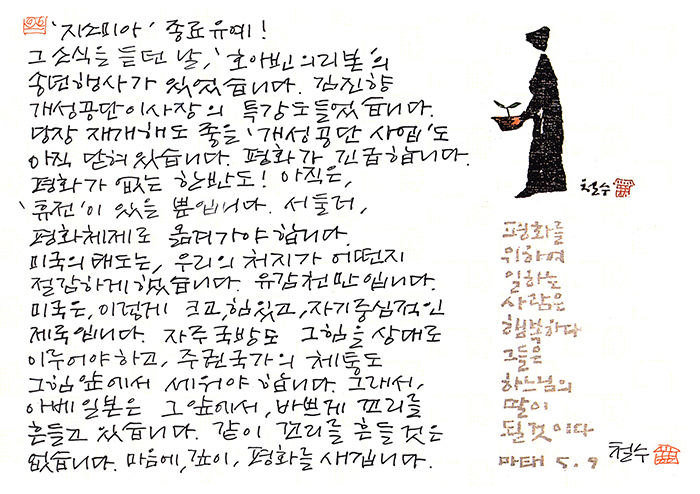 '지소미아' 종료유예!
그 소식을 듣던 날, '호아빈의 리본'의
송년행사가 있었습니다. 김진향
개성공단이사장의 특강도 들었습니다.
당장 재개해도 좋을 '개성공단 사업'도
아직 닫혀있습니다. 평화가 긴급합니다.
평화가 없는 한반도! 아직은,
'휴전'이 있을 뿐입니다. 서둘러,
평화체제로 옮겨가야 합니다.
미국의 태도는, 우리의 처지가 어떤지
절감하게 했습니다. 유감천만입니다.
미국은, 이렇게 크고, 힘있고, 자기중심적인
제국입니다. 자주국방도 그 힘을 상대로
이루어야 하고, 주권국가의 체통도
그 힘 앞에서 세워야 합니다. 그래서,
아베 일본은 그 앞에서, 바쁘게 꼬리를
흔들고 있습니다. 같이 꼬리를 흔들 것은
없습니다. 마음에, 깊이, 평화를 새깁니다.
철수
평화를
위하여
일하는
사람은
행복하다
그들은
하느님의
딸이
될것이다
마태 5. 9
철수